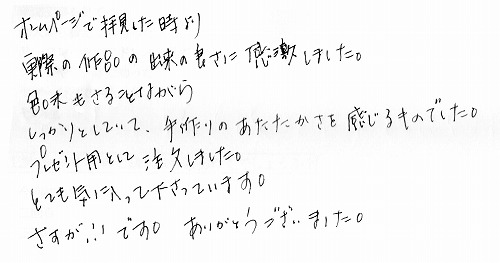 ホームページで拝見した時より
実際の作品の出来の良さに感激しました。
色味もさることながら
しっかりとしていて、手作りのあたたかさを感じるものでした。
プレゼント用として注文しました。
とても気に入って下さっています。
さすが!!です。 ありがとうございました。